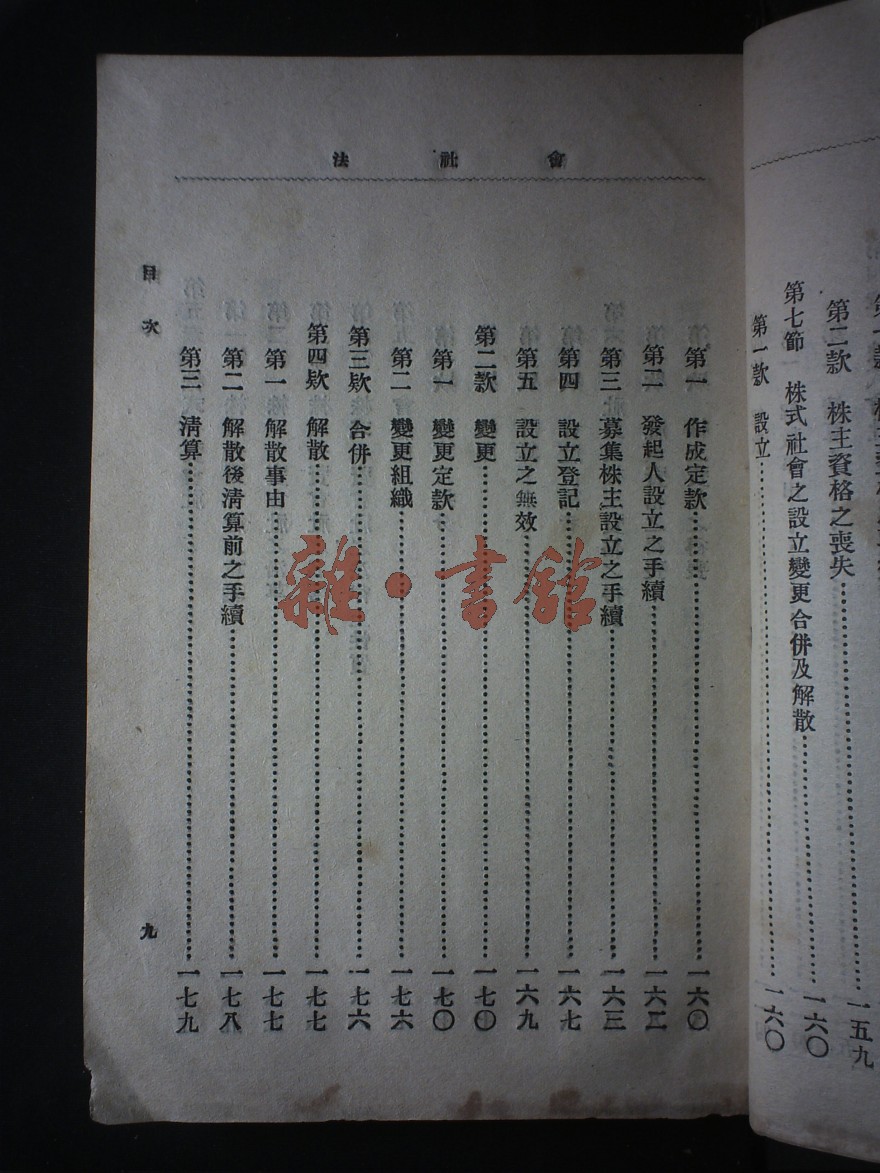 第二款 株主資格之喪失……一五九
第七節 株式社會之設立變更合併及解散……一六〇
第一款 設立……一六〇
會社法
第一 作成定款……一六〇
第二 發起人設立之手續……一六二
第三 募集株主設立之手續……一六三
第四 設立登記……一六七
第五 設立之無效……一六九
第二款 變更……一七〇
第一 變更定款……一七〇
第二 變更組織……一七六
第三欵 合併……一七六
第四欵 解散……一七七
第一 解散事由……一七七
第二 解散後淸算前之手續……一七八
第三 淸算……一七九
目次
九
雜·書館